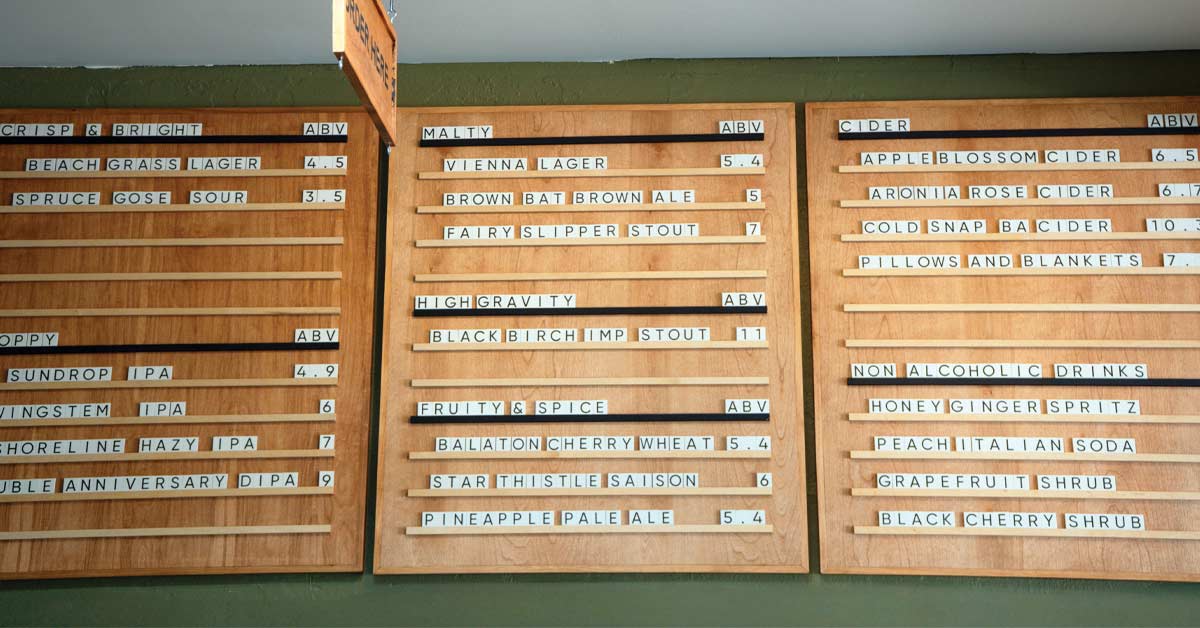 ORDER HERE
CRISP & BRIGHT ABV
BEACH GRASS LAGER 4.5
SPRUCE GOSE SOUR 3.5
OPPY ABV
SUNDROP IPA 4.9
WINGSTEM IPA 6
SHORELINE HAZY IPA 7
UBLE ANNIVERSARY DIPA 9
MALTY ABV
VIENNA LAGER 5.4
BROWN BAT BROWN ALE 5
FAIRY SLIPPER STOUT 7
HIGH GRAVITY ABV
BLACK BIRCH IMP STOUT 11
FRUITY & SPICE ABV
BALATON CHERRY WHEAT 5.4
STAR THISTLE SAISON 6
PINEAPPLE PALE ALE 5.4
CIDER ABV
APPLE BLOSSOM CIDER 6.5
ARONIA ROSE CIDER 6.7
COLD SNAP BA CIDER 10.
PILLOWS AND BLANKETS 7.
NON ALCOHOLIC DRINKS
HONEY GINGER SPRITZ
PEACH ITALIAN SODA
GRAPEFRUIT SHRUB
BLACK CHERRY SHRUB